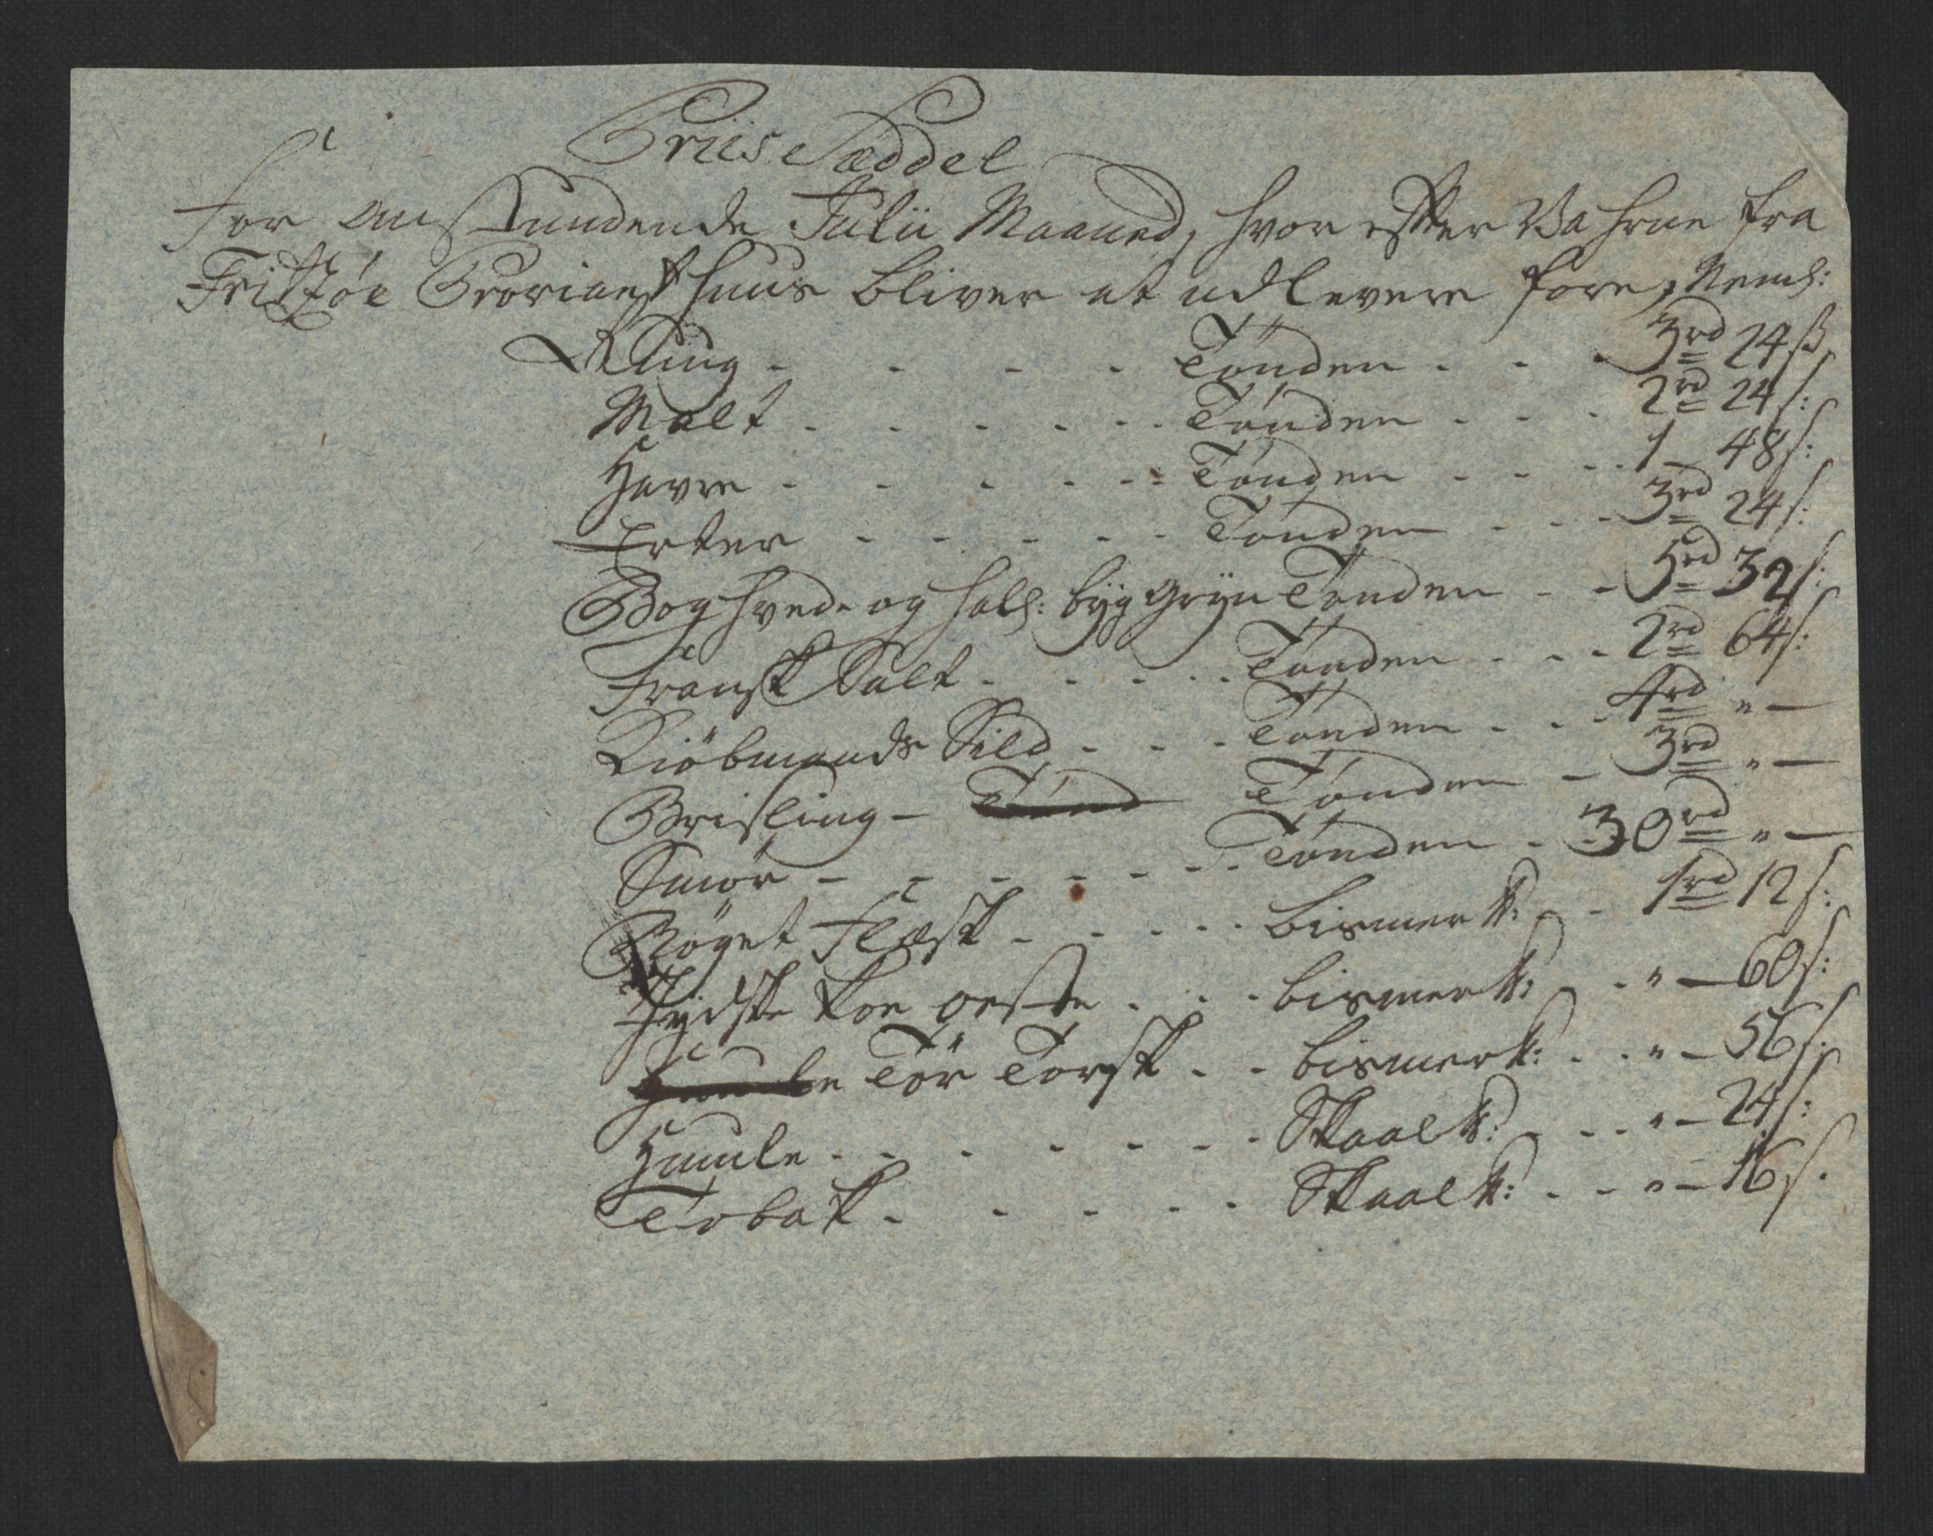 Priis Sæddel
For anstundende Julii Maaned, hvor efter Vahrne fra
Fritzöe Proviant huus bliver at udlevere fore, Neml:
Rug - - - - Tönden - - - 3rd 24 ß
Malt - - - - - Tönden - - - 2rd 24 s:
Havre - - - - - Tönden - - - 1 - 48 s:
Erter - - - - - Tönden - - - 3rd 24 s:
Boghvede og hall: byg Gryn Tönden - - 5rd 32 s:
Fransk Salt - - - - Tönden - - - 2rd 64 s:
Kiöbmands Sild - - - Tönden - - - 4rd " -
Brisling - Tönd Tönden - 3rd " -
Smör - - - - - - - Tönden - 30rd " -
Röget Flæsk - - - - - bismerk: - - 1rd 12 s:
Tydske Koe oeste - - - bismerk: - - " - 60 s:
Humle Tör Torsk - - bismerk: - - " - 56 s:
Humle - - - - - - Skaalk: - - - " - 24 s:
Tobak - - - - - Skaalk: - - " - 16 s.